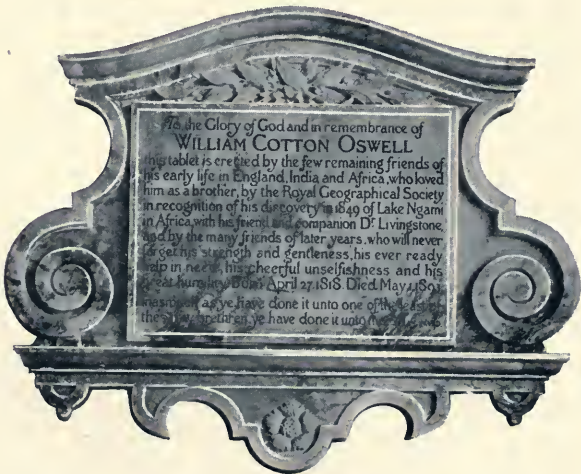 To the Glory of God and in remembrance of
WILLIAM COTTON OSWELL
this tablet is erected by the few remaining friends of
his early life in England, India and Africa, who loved
him as a brother, by the Royal Geographical Society
in recognition of his discovery in 1849 of Lake Ngami
in Africa, with his friend and companion Dr. Livingstone,
and by the many friends of later years, who will never
forget his strength and gentleness, his ever ready
help in need, his cheerful unselfishness and his
great humility. Born April 27 1818. Died May 1 1893.
Inasmuch as ye have done it unto one of the least of
these my brethren, ye have done it unto me.